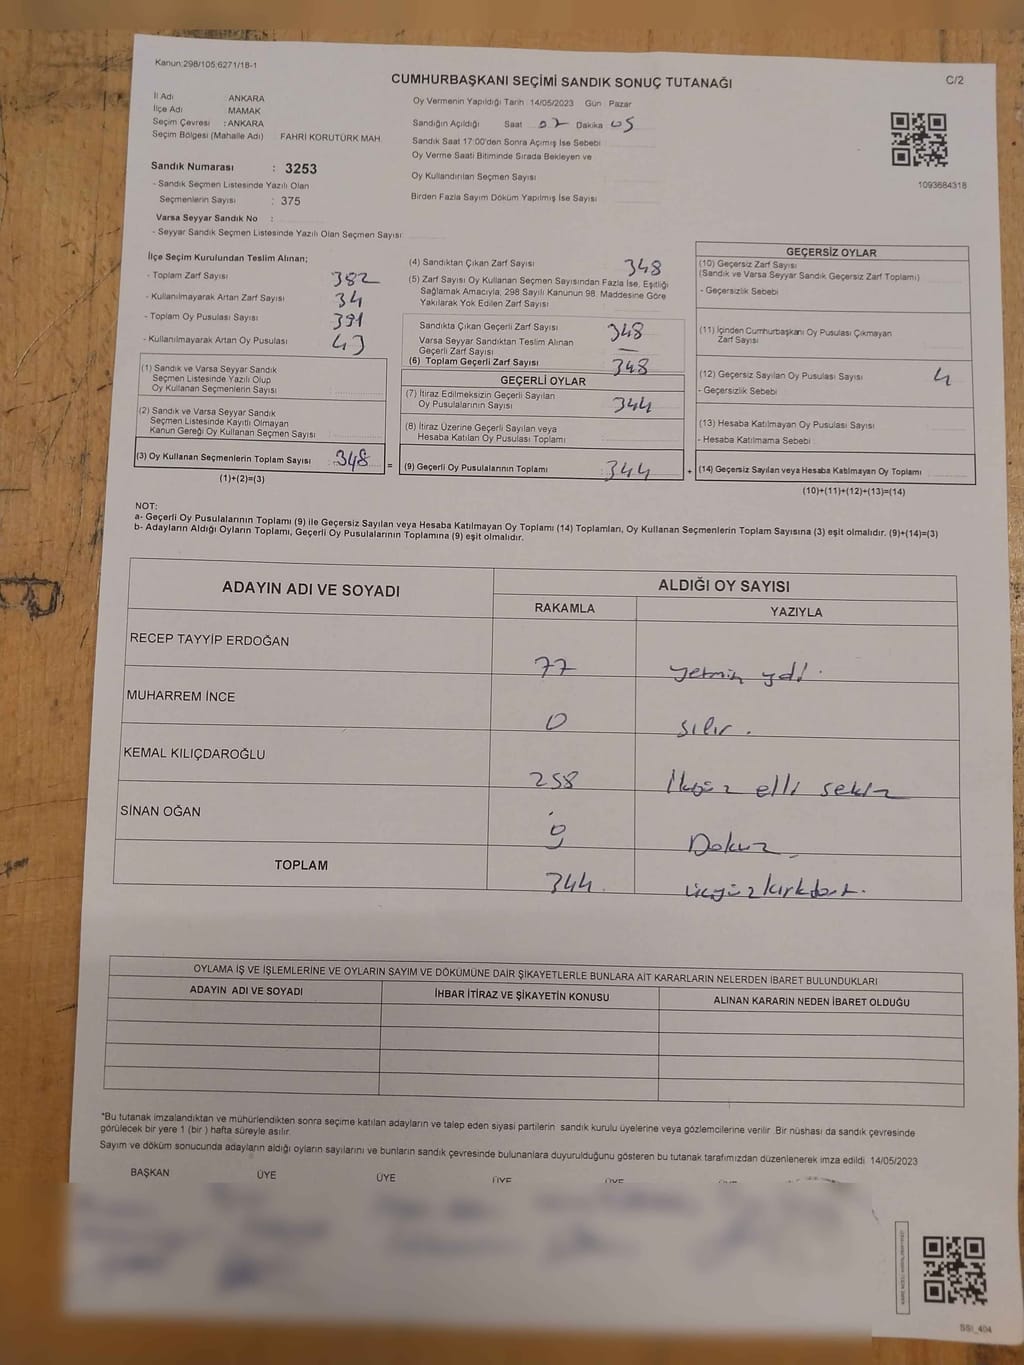 Kanun:298/105;6271/18-1
CUMHURBAŞKANI SEÇİMİ SANDIK SONUÇ TUTANAĞI
C/2
İl Adı : ANKARA
İlçe Adı : MAMAK
Seçim Çevresi : ANKARA
Seçim Bölgesi (Mahalle Adı) : FAHRİ KORUTÜRK MAH.
Sandık Numarası : 3253
- Sandık Seçmen Listesinde Yazılı Olan
Seçmenlerin Sayısı : 375
Varsa Seyyar Sandık No :
- Seyyar Sandık Seçmen Listesinde Yazılı Olan Seçmen Sayısı:
Oy Vermenin Yapıldığı Tarih : 14/05/2023 Gün : Pazar
Sandığın Açıldığı Saat 07 Dakika 05
Sandık Saat 17:00'den Sonra Açılmış İse Sebebi :
Oy Verme Saati Bitiminde Sırada Bekleyen ve
Oy Kullandırılan Seçmen Sayısı :
Birden Fazla Sayım Döküm Yapılmış İse Sayısı :
1093684318
İlçe Seçim Kurulundan Teslim Alınan;
- Toplam Zarf Sayısı : 382
- Kullanılmayarak Artan Zarf Sayısı : 34
- Toplam Oy Pusulası Sayısı : 391
- Kullanılmayarak Artan Oy Pusulası : 43
(1) Sandık ve Varsa Seyyar Sandık
Seçmen Listesinde Yazılı Olup
Oy Kullanan Seçmenlerin Sayısı :
(2) Sandık ve Varsa Seyyar Sandık
Seçmen Listesinde Kayıtlı Olmayan
Kanun Gereği Oy Kullanan Seçmen Sayısı :
(3) Oy Kullanan Seçmenlerin Toplam Sayısı : 348
(1)+(2)=(3)
=
(4) Sandıktan Çıkan Zarf Sayısı : 348
(5) Zarf Sayısı Oy Kullanan Seçmen Sayısından Fazla İse, Eşitliği
Sağlamak Amacıyla, 298 Sayılı Kanunun 98. Maddesine Göre
Yakılarak Yok Edilen Zarf Sayısı :
Sandıkta Çıkan Geçerli Zarf Sayısı : 348
Varsa Seyyar Sandıktan Teslim Alınan
Geçerli Zarf Sayısı : —
(6) Toplam Geçerli Zarf Sayısı : 348
GEÇERLİ OYLAR
(7) İtiraz Edilmeksizin Geçerli Sayılan
Oy Pusulalarının Sayısı : 344
(8) İtiraz Üzerine Geçerli Sayılan veya
Hesaba Katılan Oy Pusulası Toplamı :
(9) Geçerli Oy Pusulalarının Toplamı : 344
+
GEÇERSİZ OYLAR
(10) Geçersiz Zarf Sayısı :
(Sandık ve Varsa Seyyar Sandık Geçersiz Zarf Toplamı)
- Geçersizlik Sebebi :
(11) İçinden Cumhurbaşkanı Oy Pusulası Çıkmayan
Zarf Sayısı :
(12) Geçersiz Sayılan Oy Pusulası Sayısı : 4
- Geçersizlik Sebebi :
(13) Hesaba Katılmayan Oy Pusulası Sayısı :
- Hesaba Katılmama Sebebi :
(14) Geçersiz Sayılan veya Hesaba Katılmayan Oy Toplamı :
(10)+(11)+(12)+(13)=(14)
NOT:
a- Geçerli Oy Pusulalarının Toplamı (9) ile Geçersiz Sayılan veya Hesaba Katılmayan Oy Toplamı (14) Toplamları, Oy Kullanan Seçmenlerin Toplam Sayısına (3) eşit olmalıdır. (9)+(14)=(3)
b- Adayların Aldığı Oyların Toplamı, Geçerli Oy Pusulalarının Toplamına (9) eşit olmalıdır.
ADAYIN ADI VE SOYADI
ALDIĞI OY SAYISI
RAKAMLA YAZIYLA
RECEP TAYYİP ERDOĞAN 77 yetmiş yedi.
MUHARREM İNCE 0 sıfır.
KEMAL KILIÇDAROĞLU 258 İkiyüz elli sekiz
SİNAN OĞAN 9 Dokuz
TOPLAM 344 üçyüzkırkdört.
OYLAMA İŞ VE İŞLEMLERİNE VE OYLARIN SAYIM VE DÖKÜMÜNE DAİR ŞİKAYETLERLE BUNLARA AİT KARARLARIN NELERDEN İBARET BULUNDUKLARI
ADAYIN ADI VE SOYADI İHBAR İTİRAZ VE ŞİKAYETİN KONUSU ALINAN KARARIN NEDEN İBARET OLDUĞU
*Bu tutanak imzalandıktan ve mühürlendikten sonra seçime katılan adayların ve talep eden siyasi partilerin sandık kurulu üyelerine veya gözlemcilerine verilir. Bir nüshası da sandık çevresinde
görülecek bir yere 1 (bir ) hafta süreyle asılır.
Sayım ve döküm sonucunda adayların aldığı oyların sayılarını ve bunların sandık çevresinde bulunanlara duyurulduğunu gösteren bu tutanak tarafımızdan düzenlenerek imza edildi. 14/05/2023
BAŞKAN ÜYE ÜYE ÜYE ÜYE ÜYE
SSI_404